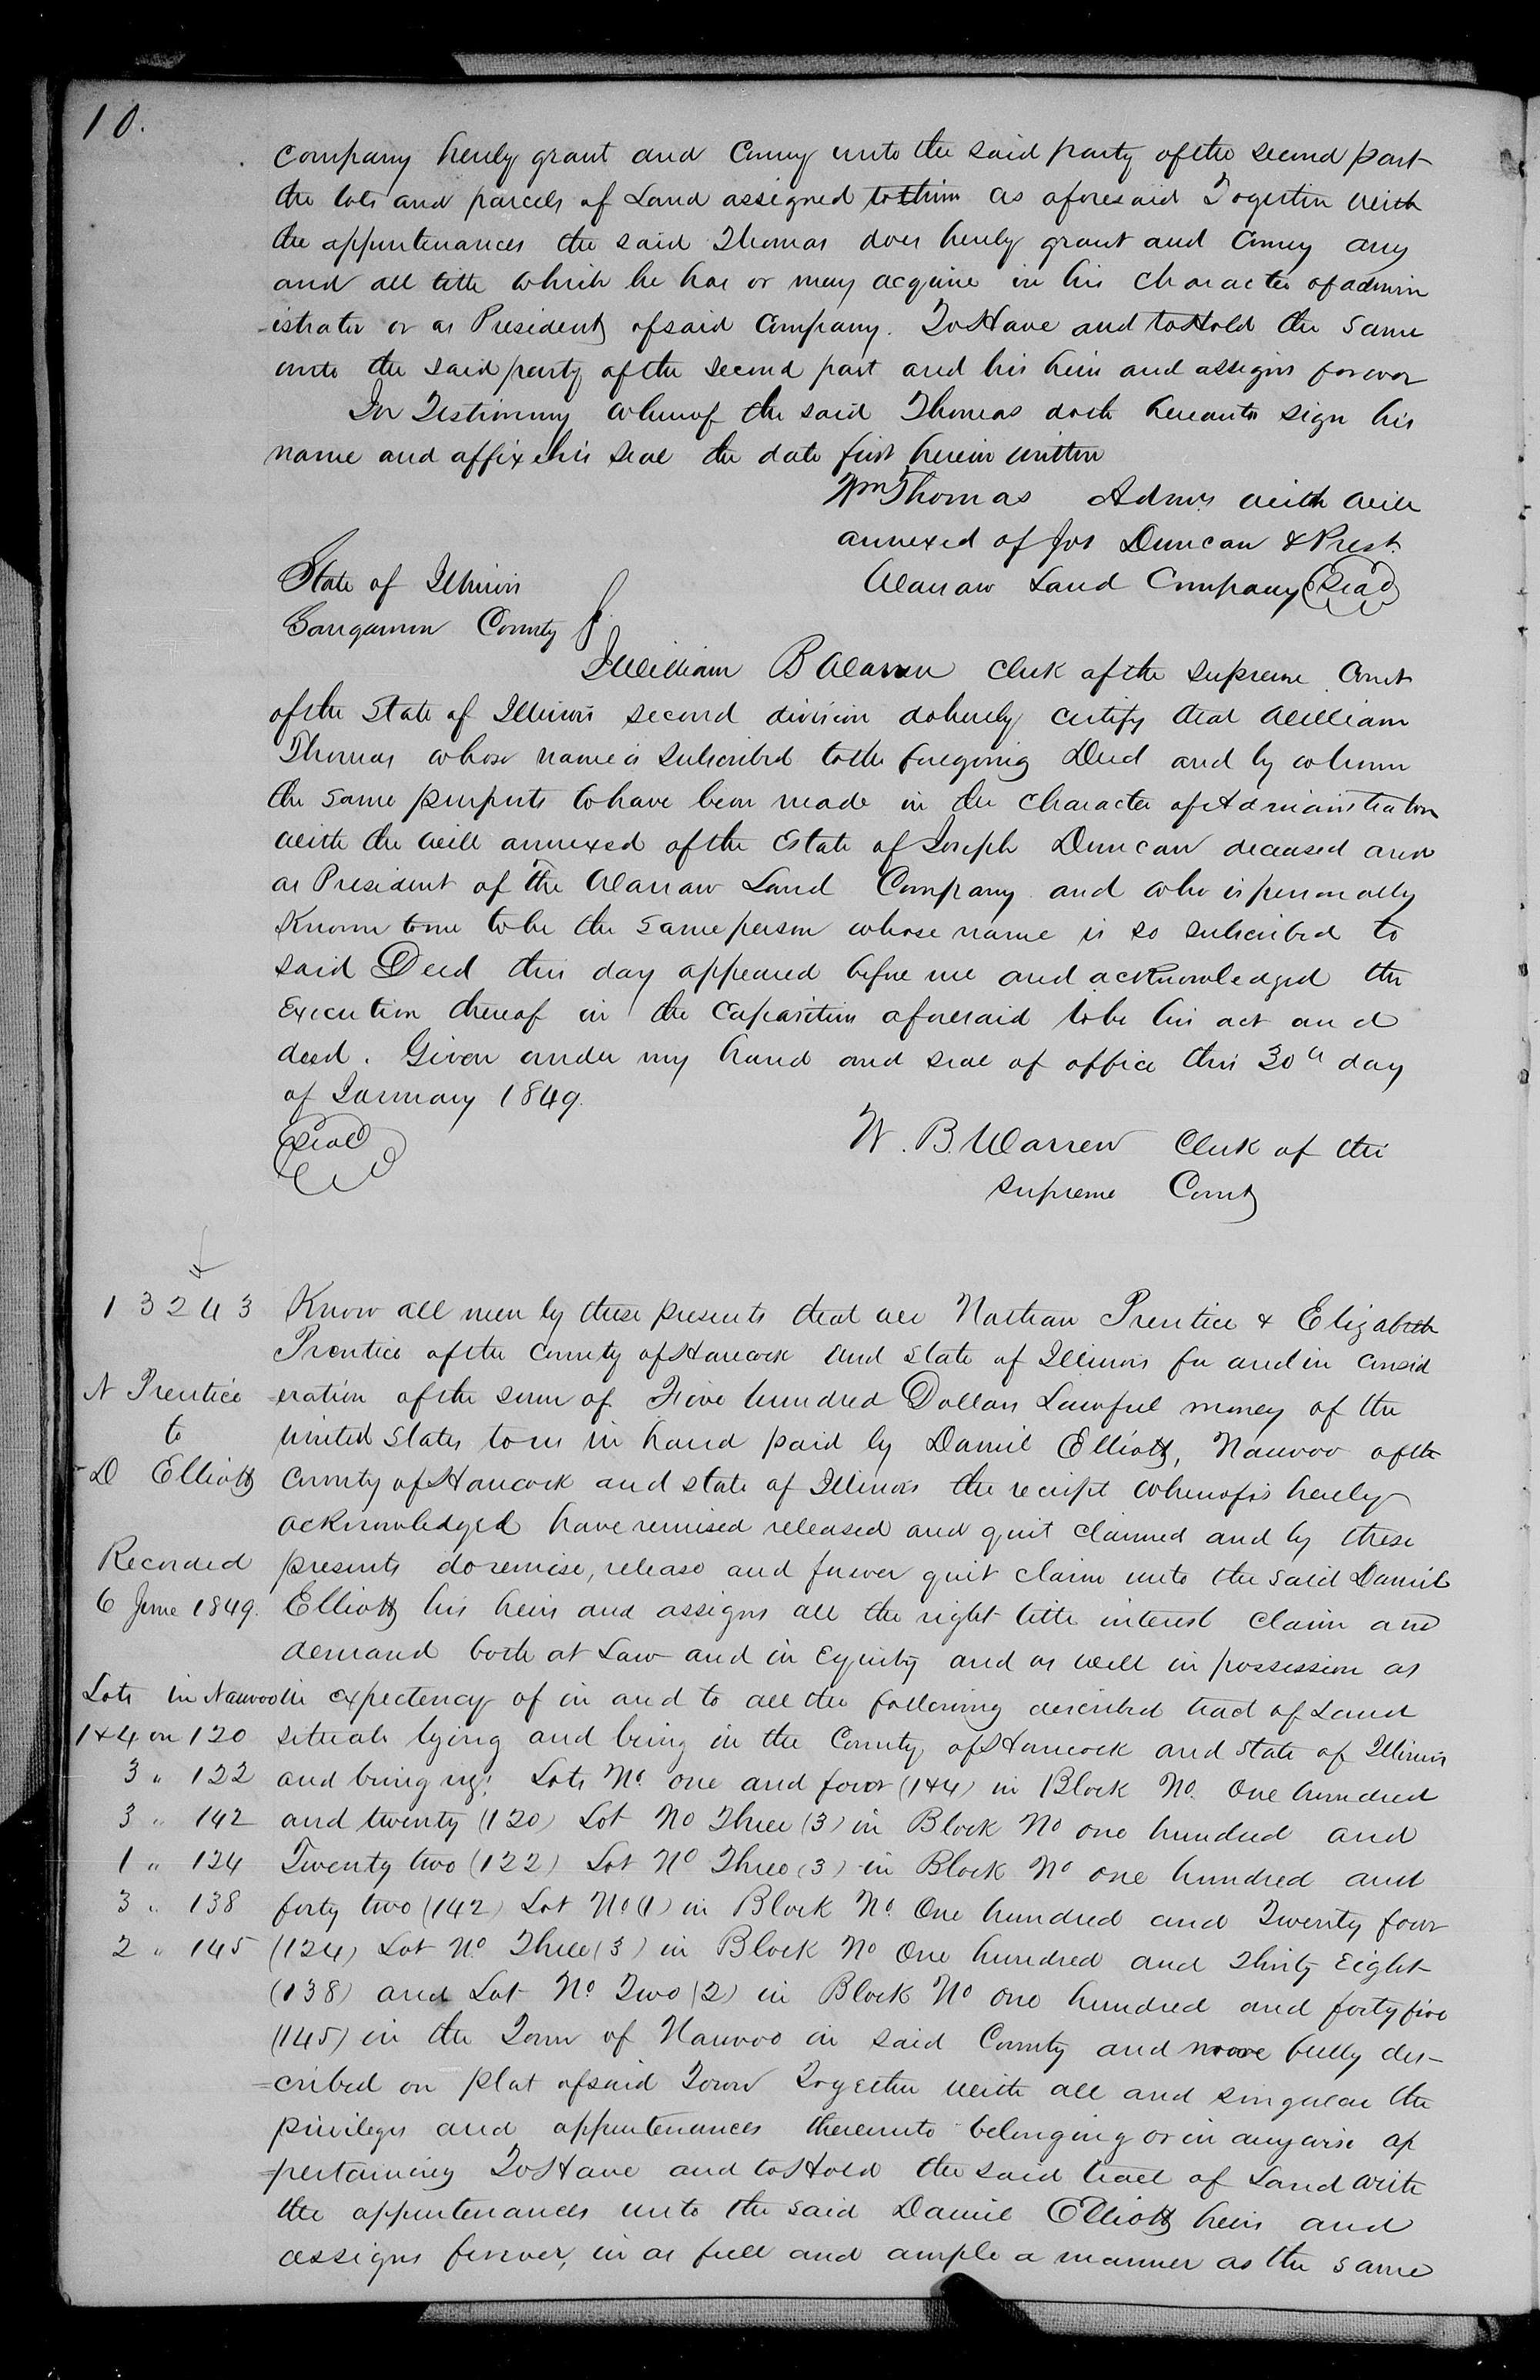 10.
company hereby grant and convey unto the said party of the second part
the lots and parcels of Land assigned to him as aforesaid Together with
the appurtenances the said Thomas does hereby grant and convey any
and all title which he has or may acquire in his character of admin
-istrator or as President of said Company. To Have and to Hold the same
unto the said party of the second part and his heirs and assigns forever
In Testimony whereof the said Thomas doth hereunto sign his
name and affix his seal the date first herein written
Wm Thomas Admr with will
annexed of Jos Duncan & Prest.
Warsaw Land Company Seal
State of Illinois
Sangamon County
I William B Warren Clerk of the Supreme Court
of the State of Illinois second division do hereby certify that William
Thomas whose name is subscribed to the foregoing Deed and by whom
the same purports to have been made in the character of Administrator
with the will annexed of the Estate of Joseph Duncan deceased and
as President of the Warsaw Land Company and who is personally
Known to me to be the same person whose name is so subscribed to
said Deed this day appeared before me and acknowledged the
Execution thereof in the Capacities aforesaid to be his act and
deed. Given under my hand and seal of office this 30th day
of January 1849.
Seal
W. B. Warren Clerk of the
Supreme Court
13243 Know all men by these presents that we Nathan Prentice & Elizabeth
Prentice of the County of Hancock and State of Illinois for and in consid
N Prentice -eration of the sum of Five hundred Dollars Lawful money of the
to United States to us in hand paid by Daniel Elliott, Nauvoo of the
D Elliott County of Hancock and state of Illinois the receipt whereof is hereby
acknowledged have remised released and quit claimed and by these
Recorded presents do remise, release and forever quit claim unto the said Daniel
6 June 1849. Elliott his heirs and assigns all the right title interest claim and
demand both at Law and in Equity and as well in possession as
Lots in Nauvoo in expectency of in and to all the following described tract of Land
1&4 on 120 situate lying and being in the County of Hancock and State of Illinois
3 " 122 and being Lots No. one and four (1&4) in Block No. One hundred
3 " 142 and twenty (120) Lot No Three (3) in Block No one hundred and
1 " 124 Twenty two (122) Lot No Three (3) in Block No one hundred and
3 " 138 forty two (142) Lot No (1) in Block No. One hundred and Twenty four
2 " 145 (124) Lot No. Three (3) in Block No One hundred and Thirty Eight
(138) and Lot No. Two (2) in Block No one hundred and forty five
(145) in the Town of Nauvoo in said County and more fully des-
=cribed on plat of said Town Together with all and singular the
privileges and appurtenances thereunto belonging or in anywise ap
=pertaining To Have and to Hold the said tract of Land with
the appurtenances unto the said Daniel Elliott heirs and
assigns forever, in as full and ample a manner as the same